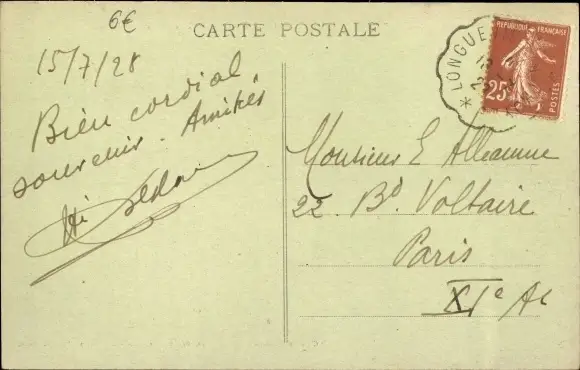 6€
CARTE POSTALE
15/7/28
Bien cordial
souvenir. Amitiés
LONGUE
REPUBLIQUE FRANÇAISE
25c
POSTES
Monsieur E
22. Bd Voltaire
Paris
XIe